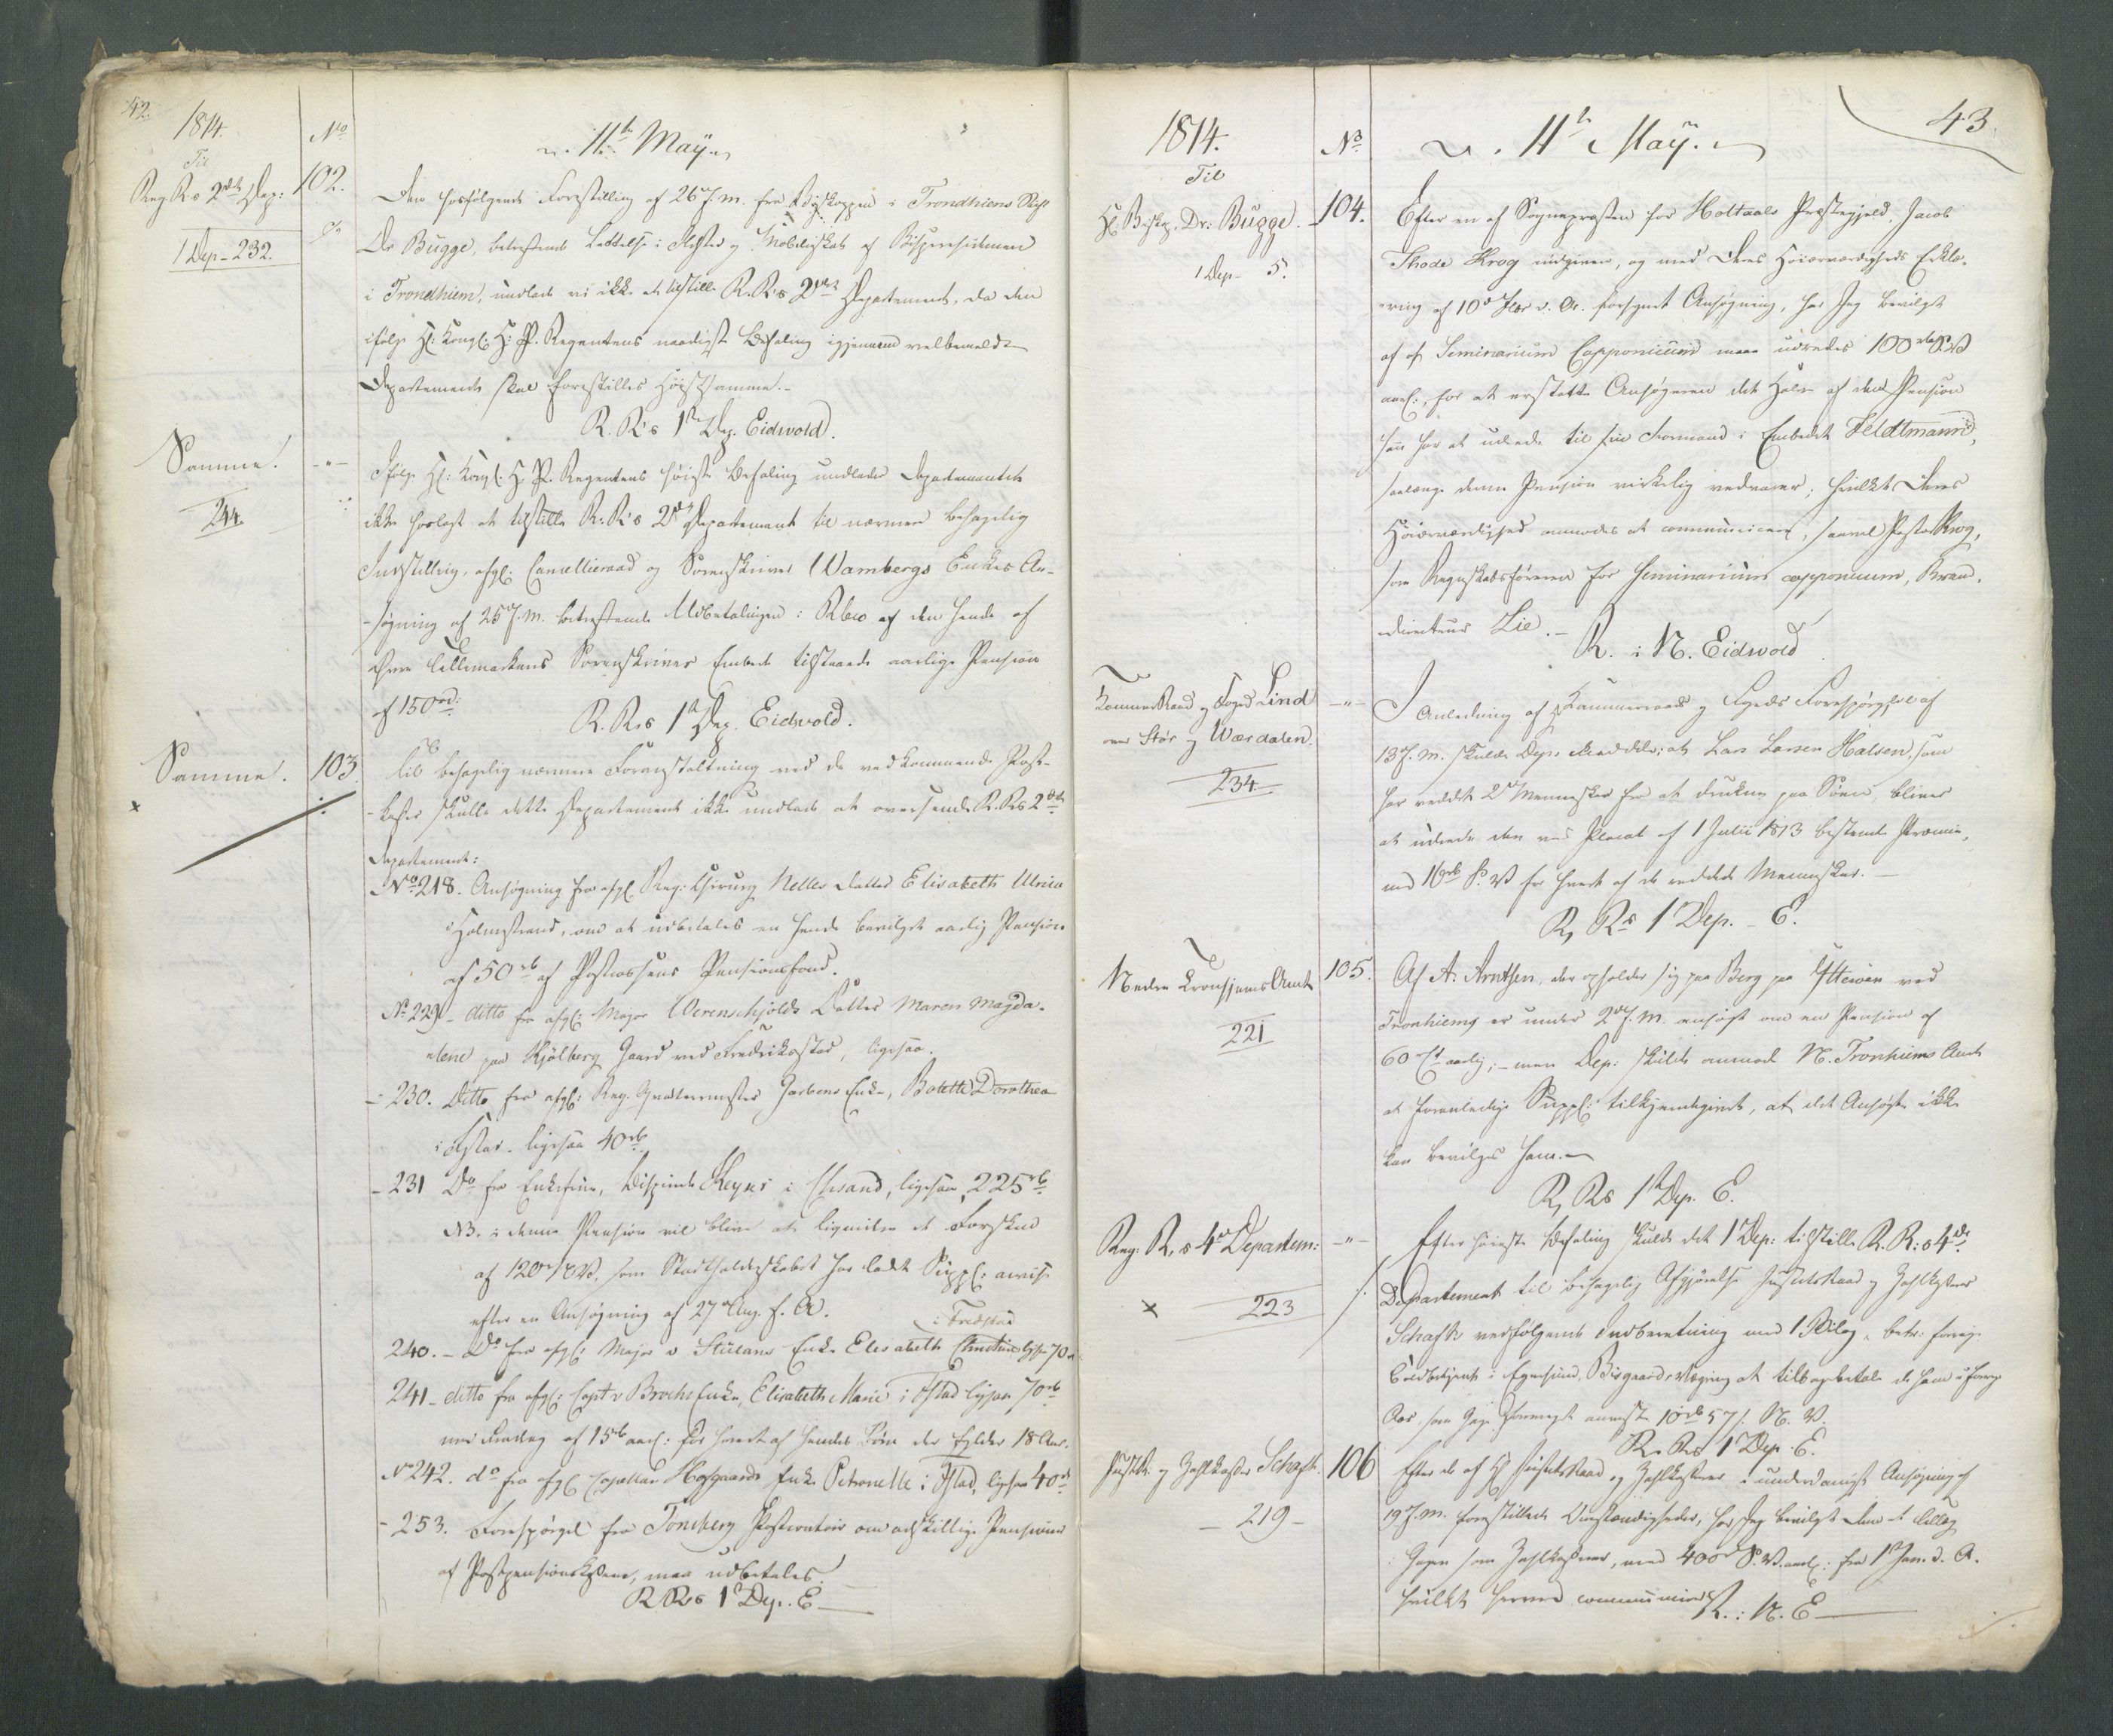 42.
1814.
Til
Reg. R's 2det Dep:
1 Dep - 232.
No
102.
11te May
Den hosfølgende Forestilling af 26 f. M. fra Biskoppen i Trondhiems Stift
Dr Bugge, betreffende Lettelse i Skatter af Bisperesidencen
i Trondhiem, undlade vi ikke at tilstille R. R's 2det Departement, da den
ifølge Hs: Kongl: H: P. Regentens naadigste Befaling igjennem velbemeldte
Departement skal forestilles Høistsamme. -
R. R's 1te Dep. Eidwold.
Samme.
244.
- " -
Ifølge Hs: Kongl: H: P. Regentens høieste Befaling undlader Departementet
ikke herved at tilstille R. R's 2det Departement til nærmere behagelig
Indstilling, afg: Cancellieraad og Sorenskriver Wambergs Enkes An-
søgning af 25 f. M. betreffende Udbetalingen i Rbco af den hende af
Øvre Tellemarkens Sorenskriver Embede tilstaaede aarlige Pension
af 150 rd:
R. R's 1te Dep. Eidwold.
Samme.
103.
Til behagelig nærmere Foranstaltning ved de vedkommende Post-
kasser skulle dette Departement ikke undlade at oversende R. R's 2det
Departement:
No 218. Ansøgning fra afg: Reg: Chirurg Nelles Datter Elisabeth Ulrica
i Holmestrand, om at udbetales en hende bevilget aarlig Pension
af 50 rb af Postcassens Pensionsfond.
No 229 - ditto fra afg: Major Werenschjolds Datter Maren Magda-
lene paa Kjølberg Gaard ved Fredrikstad, ligesaa.
- 230. Ditto fra afg: Reg. Qvarteermester Enke, Bolette Dorothea
ligesaa 40 rb
- 231 Do fra Enkefrue, Keyser i Chrsand, ligesaa 225 rb
NB. i denne Pension vil blive at liqvidere et Forskud
af 120 som Statholderskabet har ladet Suppl:
efter en Ansøgning af 27 Aug. f. A.
i Fredstad
240. - Do fra afg: Major v Enke Elisabeth Christine ligs. 70
241 - ditto fra afg: Capt v Brochs Enke, Elisabeth Marie i ligesaa 70 rb
15 rb aarl: for hvert af hendes Børn der fylder 18 Aar.
No 242. do fra afg: Capellan Hofgaards Enke Petronelle i ligesaa 40 rb
- 253. Forespørgsel fra Tønsberg Postcontoir om adskillige Pensioner
af Postpensionskassen, maa udbetales.
R R's 1te Dep. E
43.
1814.
Til
No
11te May.
Hr: Biskop Dr: Bugge.
1 Dep - 5.
104.
Efter en af Sognepræsten for Holtaalens Præstegjeld, Jacob
Thode Krog indgiven, og med Deres Høiærværdigheds Erklæ-
ring af 10de d. A. forsynet Ansøgning, har Jeg bevilget
at af Seminarium Lapponicum maae udredes 100 rb S.V
aarl:, for at erstatte Ansøgeren det Halve af den Pension
han har at udrede til sin Formand i Embedet Feldtmann,
saalænge denne Pension virkelig vedvarer; hvilket Deres
Høiærværdighed anmodes at communicere, saavel Pastor Krog,
som Regnskabsføreren for Seminarium Lapponicum, Brand-
directeur Lie. -
R. i N. Eidwold.
KammerRaad og Foged Lind
over Stør og Wærdalen.
234
- " -
I Anledning af Hr Kammerraad og Fogeds Forespørgsel af
13 f. M. skulde Dep. meddele: at Lars Larsen Halsen, som
har reddet 2de Mennesker fra at drukne paa Søen bliver
at udrede den ved Placat af 1 Julii 1813 bestemte Præmie,
med 16 rb S. V for hvert af de reddede Mennesker. -
R, R's 1 Dep. - E.
Nedre Tronhjems Amt
221
105.
Af A. Arntsen, der opholder sig paa Berg paa Ytterøen ved
Tronhiem er under 2 f. M. ansøgt om en Pension af
60 aarlig; - men Dep: skulde anmode N. Tronhiems Amt
at foranledige Suppl: tilkjendegivet, at det Ansøgte ikke
kan bevilges ham. -
R, R's 1te Dep. E.
Reg. R, s 4de Departem:
223
- " -
Efter høieste Befaling skulde det 1 Dep: tilstille R. R: s 4de
Departement til behagelig Afgjørelse Justitsraad og Zahlkasserer
Schafts vedfølgende Indberetning med 1 Bilag, betr: forrige
Toldbetjent i Egersund, Bisgaard, Vægring at tilbagebetale de ham i forrige
Aar, som Gage formeget anviste 10 rb 57 s: N. V.
R. R's 1 Dep. E.
Justitsr. og Zahlkasserer Schaft.
- 219 -
106
Efter de af Hr Justitsraad og Zahlkasserer i underdanigst Ansøgning af
19 f. M. forestillede Omstændigheder, har Jeg bevilget Dem et Tillæg
i Gagen som Zahlkasserer, med 400 S. V. aarl: fra 1 Jan. d. A.
hvilket herved communiceres.
R. i N. E